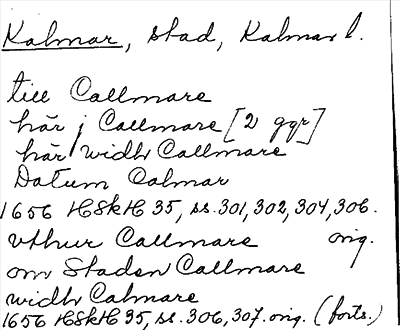 Kalmar, stad, Kalmar l.
till Callmare
här j Callmare [2 ggr]
här widh Callmare
Datum Calmar
1656 HSkH 35, ss. 301, 302, 304, 306.
vthur Callmare orig.
om Staden Callmare
widh Calmare
1656 HSkH 35, ss. 306, 307. orig. (forts.)